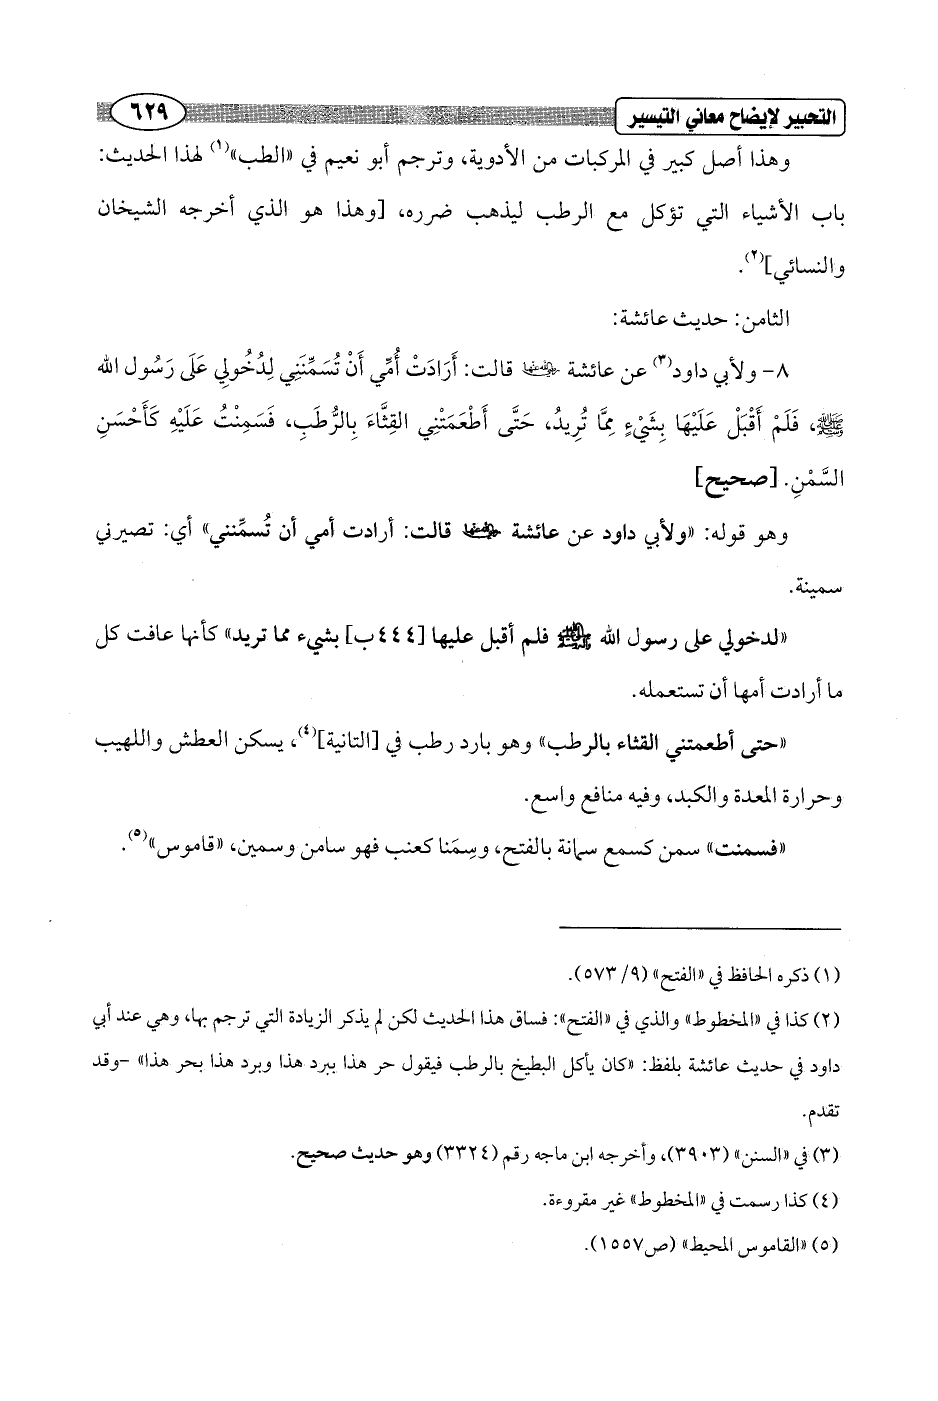 التحبير لإيضاح معاني التيسير
٦٢٩
وهذا أصل كبير في المركبات من الأدوية، وترجم أبو نعيم في «الطب»(١) لهذا الحديث:
باب الأشياء التي تؤكل مع الرطب ليذهب ضرره، [وهذا هو الذي أخرجه الشيخان
والنسائي](٢).
الثامن: حديث عائشة:
٨- ولأبي داود(٣) عن عائشة رضي الله عنها قالت: أَرَادَتْ أُمِّي أَنْ تُسَمِّنَنِي لِدُخُولِي عَلَى رَسُولِ الله
ﷺ، فَلَمْ أَقْبَلْ عَلَيْهَا بِشَيْءٍ مِمَّا تُرِيدُ، حَتَّى أَطْعَمَتْنِي القِثَّاءَ بِالرُّطَبِ، فَسَمِنْتُ عَلَيْهِ كَأَحْسَنِ
السَّمْنِ. [صحيح]
وهو قوله: «ولأبي داود عن عائشة رضي الله عنها قالت: أرادت أمي أن تُسمِّنني» أي: تصيرني
سمينة.
«لدخولي على رسول الله ﷺ فلم أقبل عليها [٤٤٤ب] بشيء مما تريد» كأنها عافت كل
ما أرادت أمها أن تستعمله.
«حتى أطعمتني القثاء بالرطب» وهو بارد رطب في [التانية](٤)، يسكن العطش واللهيب
وحرارة المعدة والكبد، وفيه منافع واسع.
«فسمنت» سمن كسمع سمانة بالفتح، وسِمَنا كعنب فهو سامن وسمين، «قاموس»(٥).
(١) ذكره الحافظ في «الفتح» (٩/ ٥٧٣).
(٢) كذا في «المخطوط» والذي في «الفتح»: فساق هذا الحديث لكن لم يذكر الزيادة التي ترجم بها، وهي عند أبي
داود في حديث عائشة بلفظ: «كان يأكل البطيخ بالرطب فيقول حر هذا ببرد هذا وبرد هذا بحر هذا» -وقد
تقدم.
(٣) في «السنن» (٣٩٠٣)، وأخرجه ابن ماجه رقم (٣٣٢٤) وهو حديث صحيح.
(٤) كذا رسمت في «المخطوط» غير مقروءة.
(٥) «القاموس المحيط» (ص١٥٥٧).